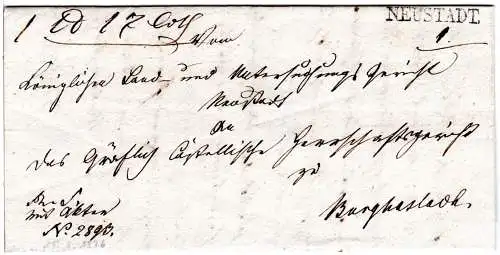 1 Pd 17 Loth
NEUSTADT.
Vom
1
Königlichen Land und Untersuchungs Gericht
Neustadt
An
das Gräflich Castellische Herrschaftsgericht
zu
Burghaslach.
mit Akten
No. 2895.